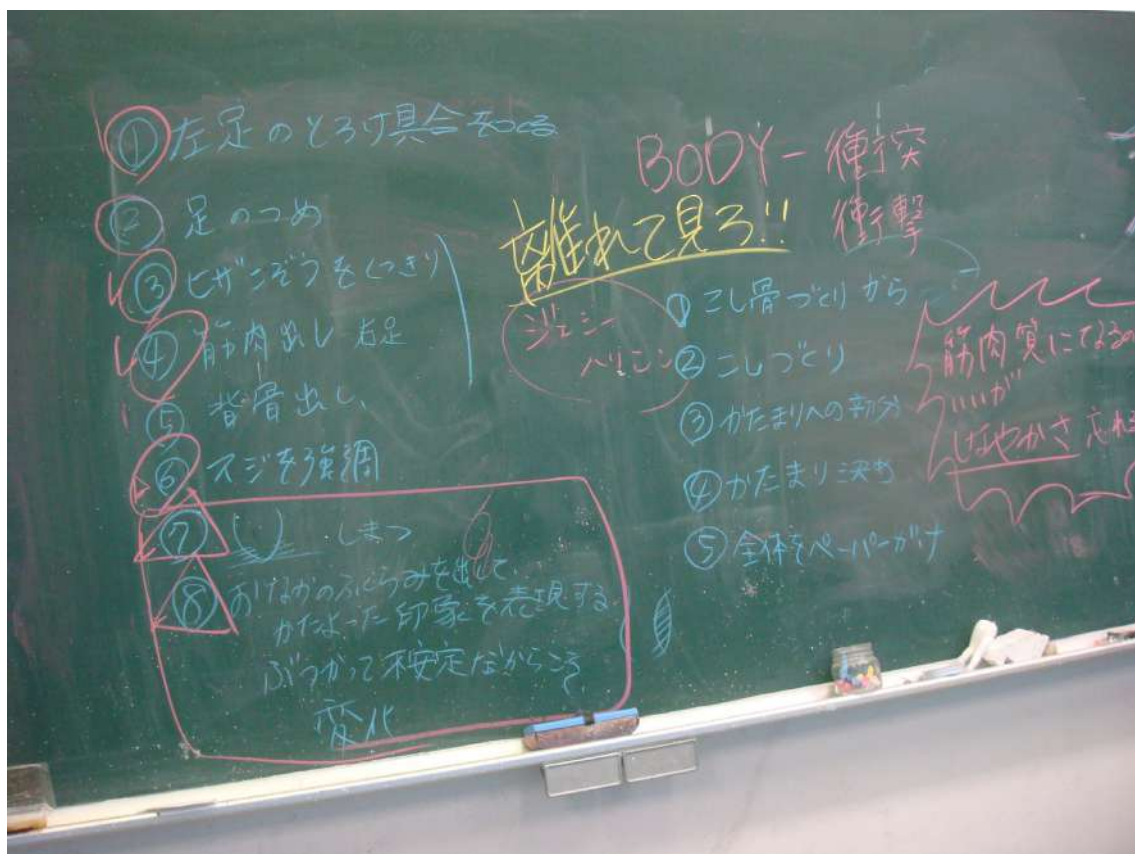 ① 左足のとろけ具合をつくる
② 足のつめ
③ ヒザこぞうをくっきり
④ 筋肉出し 右足
⑤ 背骨出し、
⑥ スジを強調
⑦ しまつ
⑧ おなかのふくらみを出して、
かたよった印象を表現する
ぶつかって不安定だからこそ
変化
BODY－衝突
衝撃
離れて見ろ!!
ジェシー
ハリソン
① こし骨づくりから
② こしづくり
③ かたまりへの
④ かたまり決め
⑤ 全体をペーパーがけ
筋肉質にてるの
いいが
しなやかさ忘れ